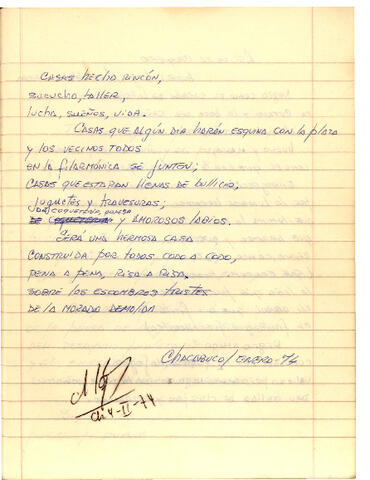 CASAS HECHO RINCÓN,
SUCUCHO, TALLER,
LUCHA, SUEÑOS, VIDA.
CASAS QUE ALGÚN DIA HARÁN ESQUINA CON LA PLAZA
Y LOS VECINOS TODOS
EN LA FILARMÓNICA SE JUNTEN;
CASAS QUE ESTARAN LLENAS DE BULLICIO,
JUGUETES Y TRAVESURAS;
DE COQUETERÍA,
DE Y AMOROSOS LABIOS.
SERÁ UNA HERMOSA CASA
CONSTRUIDA POR TODOS CODO A CODO,
PENA A PENA, RISA A RISA.
SOBRE LOS ESCOMBROS TRISTES
DE LA MORADA DEMOLIDA
CHACABUCO/ ENERO-74
4-II-74